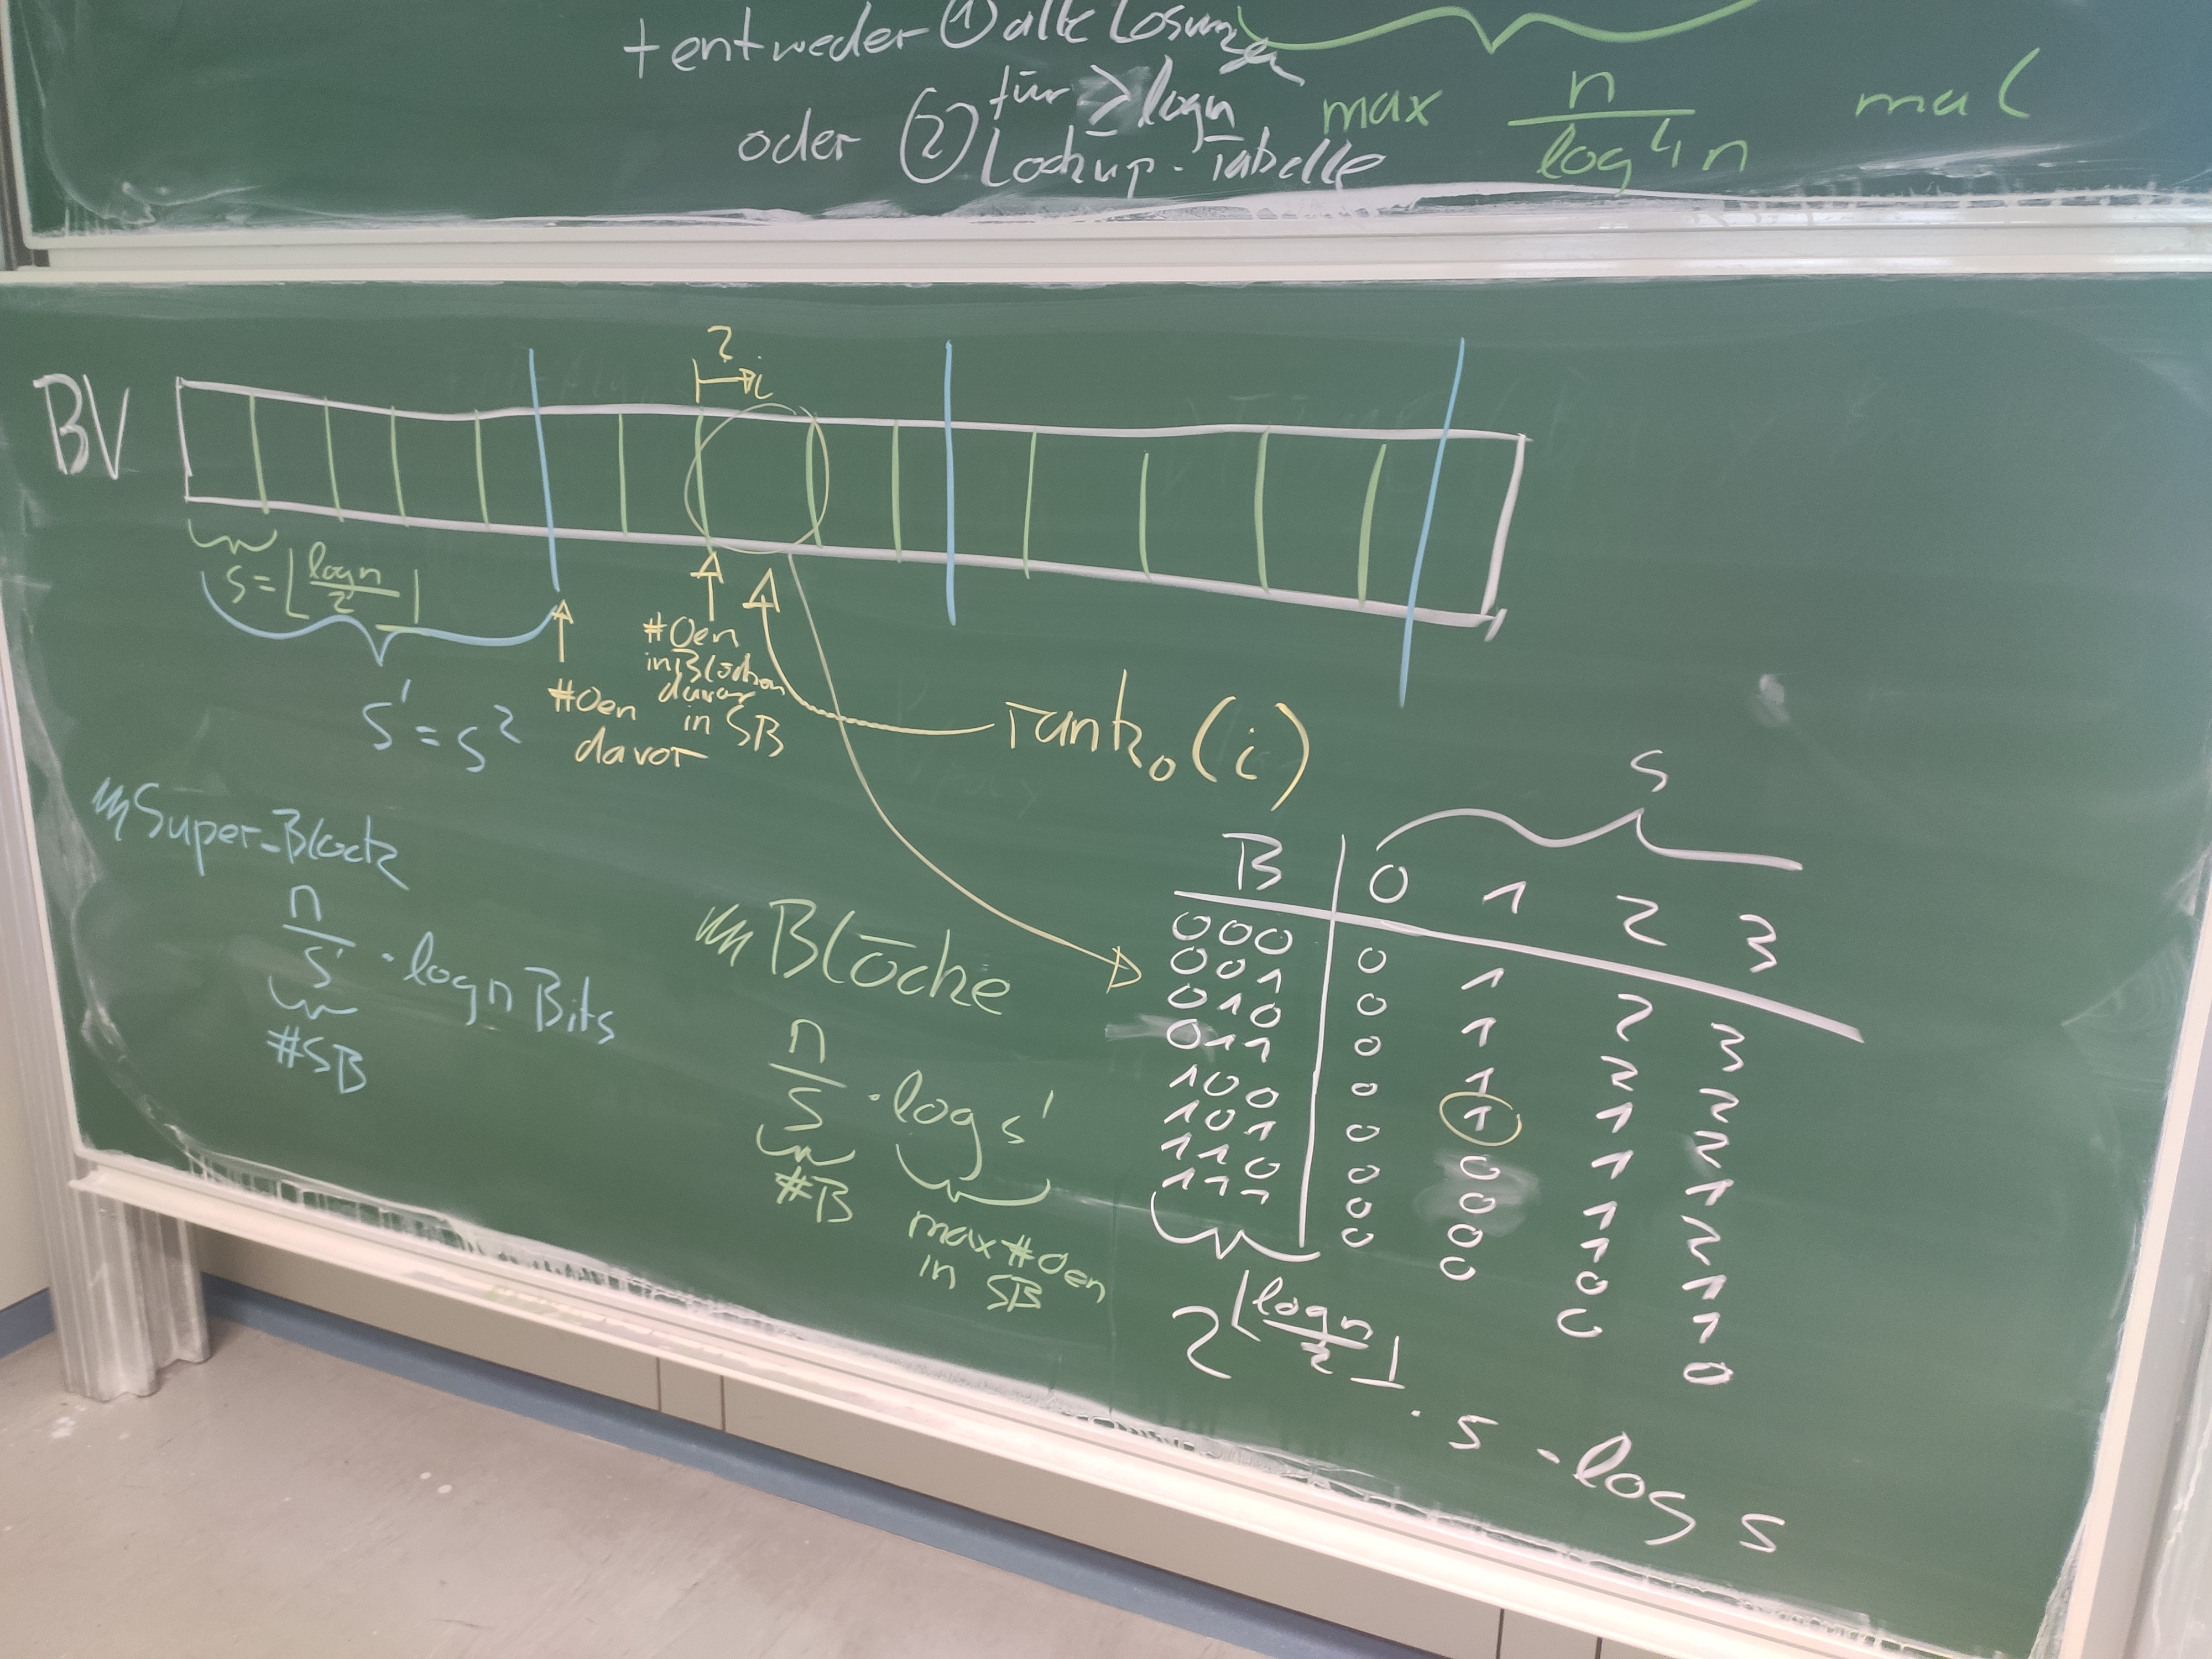 + entweder ① alle Lösungen
für ≥ log n
oder ② Lookup-Tabelle
max n/log⁴n mal
BV
? i
s = ⌊log n / 2⌋
s' = s²
#0en davor
#0en
in Blöcken
davor
in SB
rank₀(i)
Super-Block
n/s' · log n Bits
#SB
Blöcke
n/s · log s'
#B
max #0en
in SB
s
B 0 1 2 3
000 0 1 2 3
001 0 1 2 2
010 0 1 1 2
011 0 1 1 1
100 0 0 1 2
101 0 0 1 1
110 0 0 0 1
111 0 0 0 0
2^⌊log n / 2⌋ · s · log s